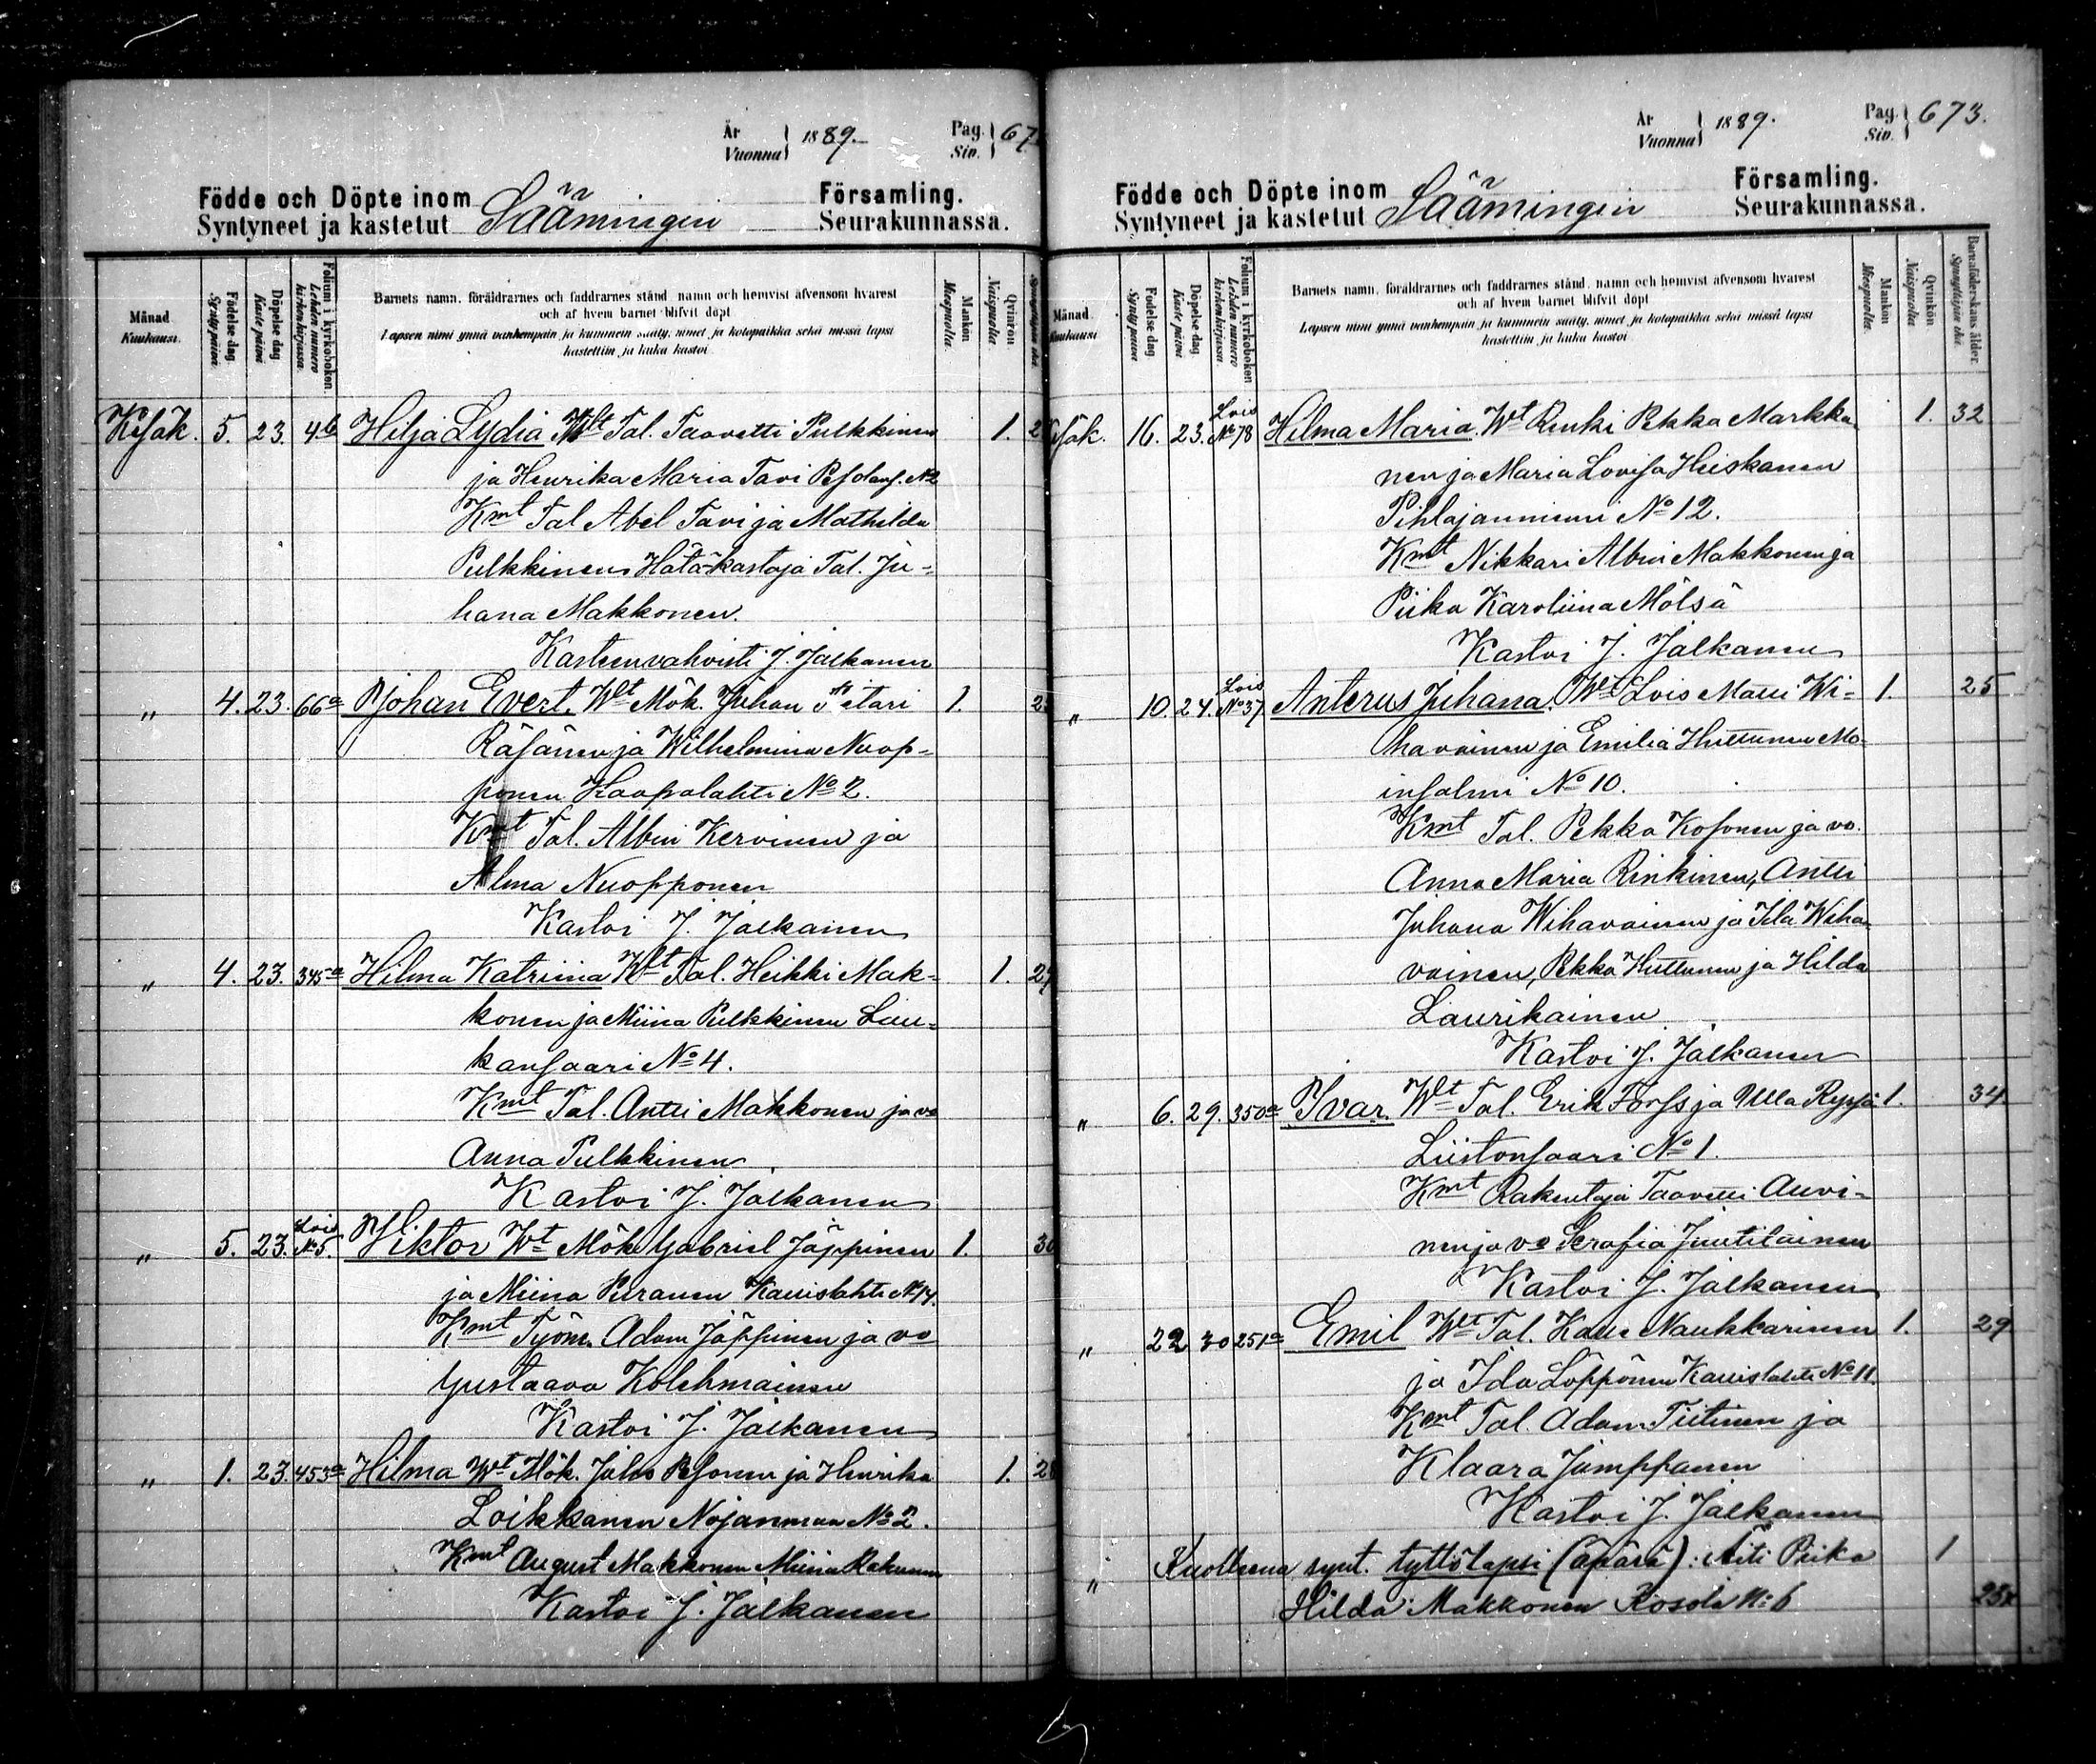 År
Vuonna } 1889.
Pag.
Siv. } 67
Födde och Döpte inom
Syntyneet ja kastetut Säämingin Församling.
Seurakunnassa.
Månad
Kuukausi.
Födelse dag
Synty päivä
Döpelse dag
Kaste päivä
Folium i kyrkoboken
Lehden numero
kirkonkirjassa.
Barnets namn, föräldrarnes och faddrarnes stånd, namn och hemvist äfvensom hvarest
och af hvem barnet blifvit döpt
Lapsen nimi ynnä vanhempain ja kumminein sääty, nimet ja kotopaikka sekä missä lapsi
kastettiin ja kuka kastoi
Mankön
Miespuolia.
Qvinkön
Naispuolia.
Kesäk. 5. 23. 46 Hilja Lydia Wlt Tal. Taavetti Pulkkinen 1. 2
ja Henrika Maria Tavi Pesolans. №2
Kmt Tal Abel Tavi ja Mathilda
Pulkkinen Hätäkastaja Tal. Ju-
hana Makkonen.
Kasteen vahvisti J. Jalkanen
„ 4. 23. 66a Johan Evert. Wlt Mök. Juhan Pietari 1. 2
Räsänen ja Wilhelmina Nuop-
ponen Haapalahti No 2.
Kmt Tal. Albin Kervinen ja
Alma Nuopponen
Kastoi J. Jalkanen
„ 4. 23. 345a Hilma Katriina Wlt Tal. Heikki Mak- 1. 2
konen ja Miina Pulkkinen Lau-
kansaari No 4.
Kmt Tal. Antti Makkonen ja vo
Anna Pulkkinen
Kastoi J. Jalkanen
„ 5. 23. Lois №5. Viktor Wt Mök Gabriel Jäppinen 1. 30
ja Miina Puranen Kauislahti №14.
Kmt Työm. Adam Jäppinen ja vo
Gustaava Kolehmainen
Kastoi J. Jalkanen
„ 1. 23. 453a Hilma Wt Mök. Juho Pesonen ja Henrika 1. 2
Loikkanen Nojanmaa No 2.
Kmt August Makkonen Miina
Kastoi J. Jalkanen
År
Vuonna } 1889.
Pag.
Siv. } 673.
Födde och Döpte inom
Syntyneet ja kastetut Säämingin Församling.
Seurakunnassa.
Månad
Kuukausi
Födelse dag
Synty päivä
Döpelse dag
Kaste päivä
Folium i kyrkoboken
Lehden numero
kirkonkirjassa.
Barnets namn, föräldrarnes och faddrarnes stånd, namn och hemvist äfvensom hvarest
och af hvem barnet blifvit döpt
Lapsen nimi ynnä vanhempain ja kumminein sääty, nimet ja kotopaikka sekä missä lapsi
kastettiin ja kuka kastoi
Mankön
Miespuolia.
Qvinkön
Naispuolia
Barnaföderskans ålder.
Synnyttäjän ikä.
säk. 16. 23. Lois №78 Hilma Maria. Wt Renki Pekka Markka 1. 32
nen ja Maria Lovisa Heiskanen
Pihlajaniemi No 12.
Kmt Nikkari Albin Makkonen ja
Piika Karoliina Mölsä
Kastoi J. Jalkanen
„ 10. 24. Lois №37 Anterus Juhana. Wlt Lois Matti Wi- 1. 25
havainen ja Emilia Huttunen Mo-
insalmi No 10.
Kmt Tal. Pekka Kosonen ja vo.
Anna Maria Rinkinen, Antti
Juhana Wihavainen ja Ida Wiha
vainen, Pekka Huttunen ja Hilda
Laurikainen
Kastoi J. Jalkanen
„ 6. 29. 350a Ivar. Wlt Tal. Erik Forss ja Ulla 1. 34.
Liistonsaari No 1.
Kmt Rakentaja Taavetti Auvi-
nen ja vo Serafia Juutilainen
Kastoi J. Jalkanen
„ 22 30 251a Emil Wlt Tal. Naukkarinen 1. 29
ja Ida Löppönen Kauislahti No 11.
Kmt Tal. Adam Tiitinen ja
Klaara Jumppanen
Kastoi J. Jalkanen
„ Kuolleena synt. tyttölapsi (äpärä): äiti Piika 1
Hilda Makkonen Kosola №6 23